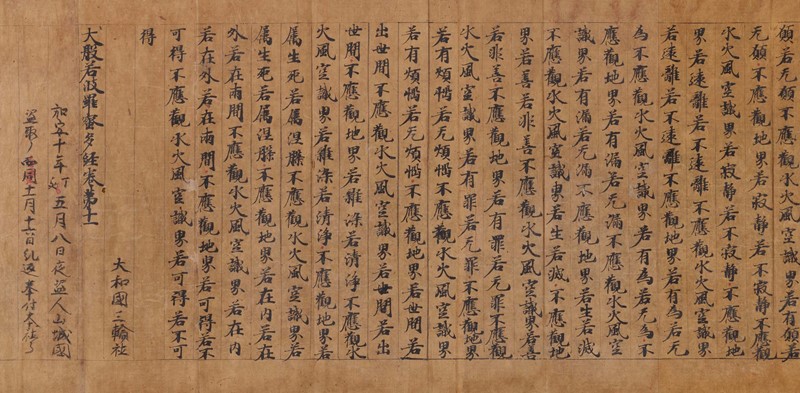 願若无願不應觀水火風空識界若有願若
无願不應觀地界若寂靜若不寂靜不應觀
水火風空識界若寂靜若不寂靜不應觀地
界若遠離若不遠離不應觀水火風空識界
若遠離若不遠離不應觀地界若有為若无
為不應觀水火風空識界若有為若无為不
應觀地界若有漏若无漏不應觀水火風空
識界若有漏若无漏不應觀地界若生若滅
不應觀水火風空識界若生若滅不應觀地
界若善若非善不應觀水火風空識界若善
若非善不應觀地界若有罪若无罪不應觀
水火風空識界若有罪若无罪不應觀地界
若有煩惱若无煩惱不應觀水火風空識界
若有煩惱若无煩惱不應觀地界若世間若
出世間不應觀水火風空識界若世間若出
世間不應觀地界若雜染若清淨不應觀水
火風空識界若雜染若清淨不應觀地界若
属生死若属涅槃不應觀水火風空識界若
属生死若属涅槃不應觀地界若在內若在
外若在兩間不應觀水火風空識界若在內
若在外若在兩間不應觀地界若可得若不
可得不應觀水火風空識界若可得若不可
得
大和國三輪社
大般若波羅蜜多經卷第十一
十年丁五月八日夜盜人山城國
盜取 同十一月十六日 返奉付